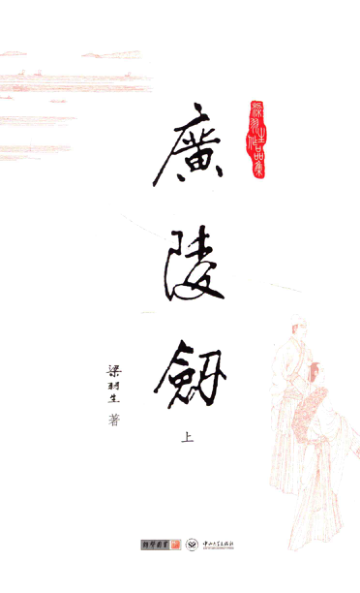 廣陵劍
上
梁羽生
著
中山大學出版社